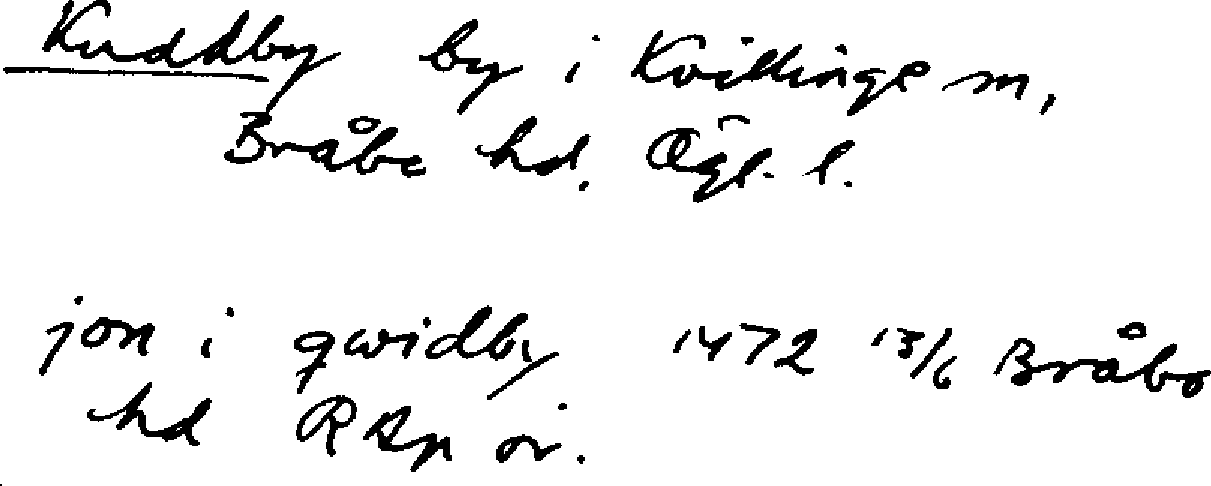 Kuddby by i Kvillinge sn,
Bråbo hd. Ögl. l.
jon i qwidby 1472 13/6 Bråbo
hd RAp or.